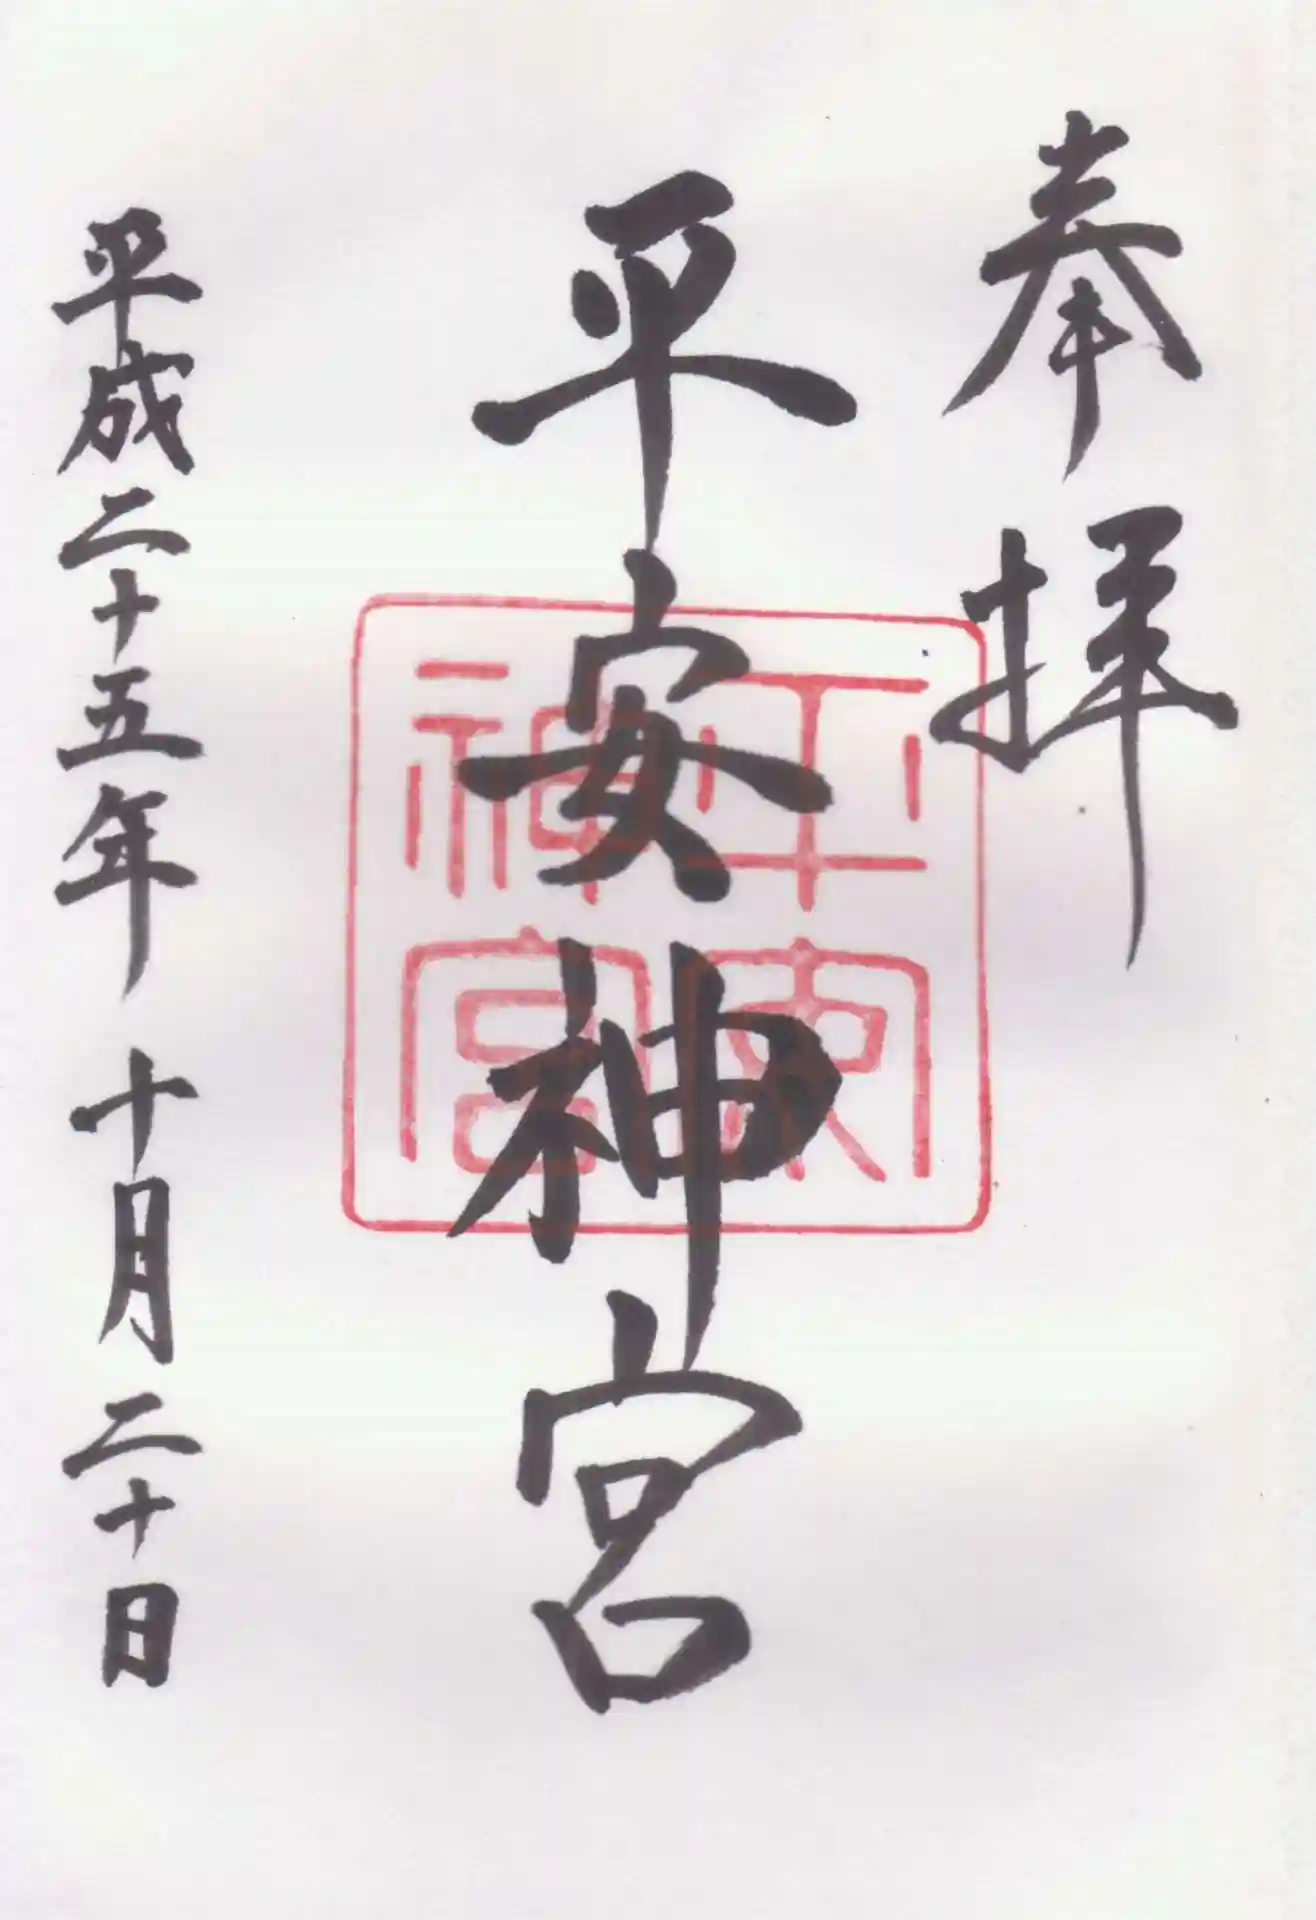 奉拝
平安神宮
平安神宮
平成二十五年十月二十日